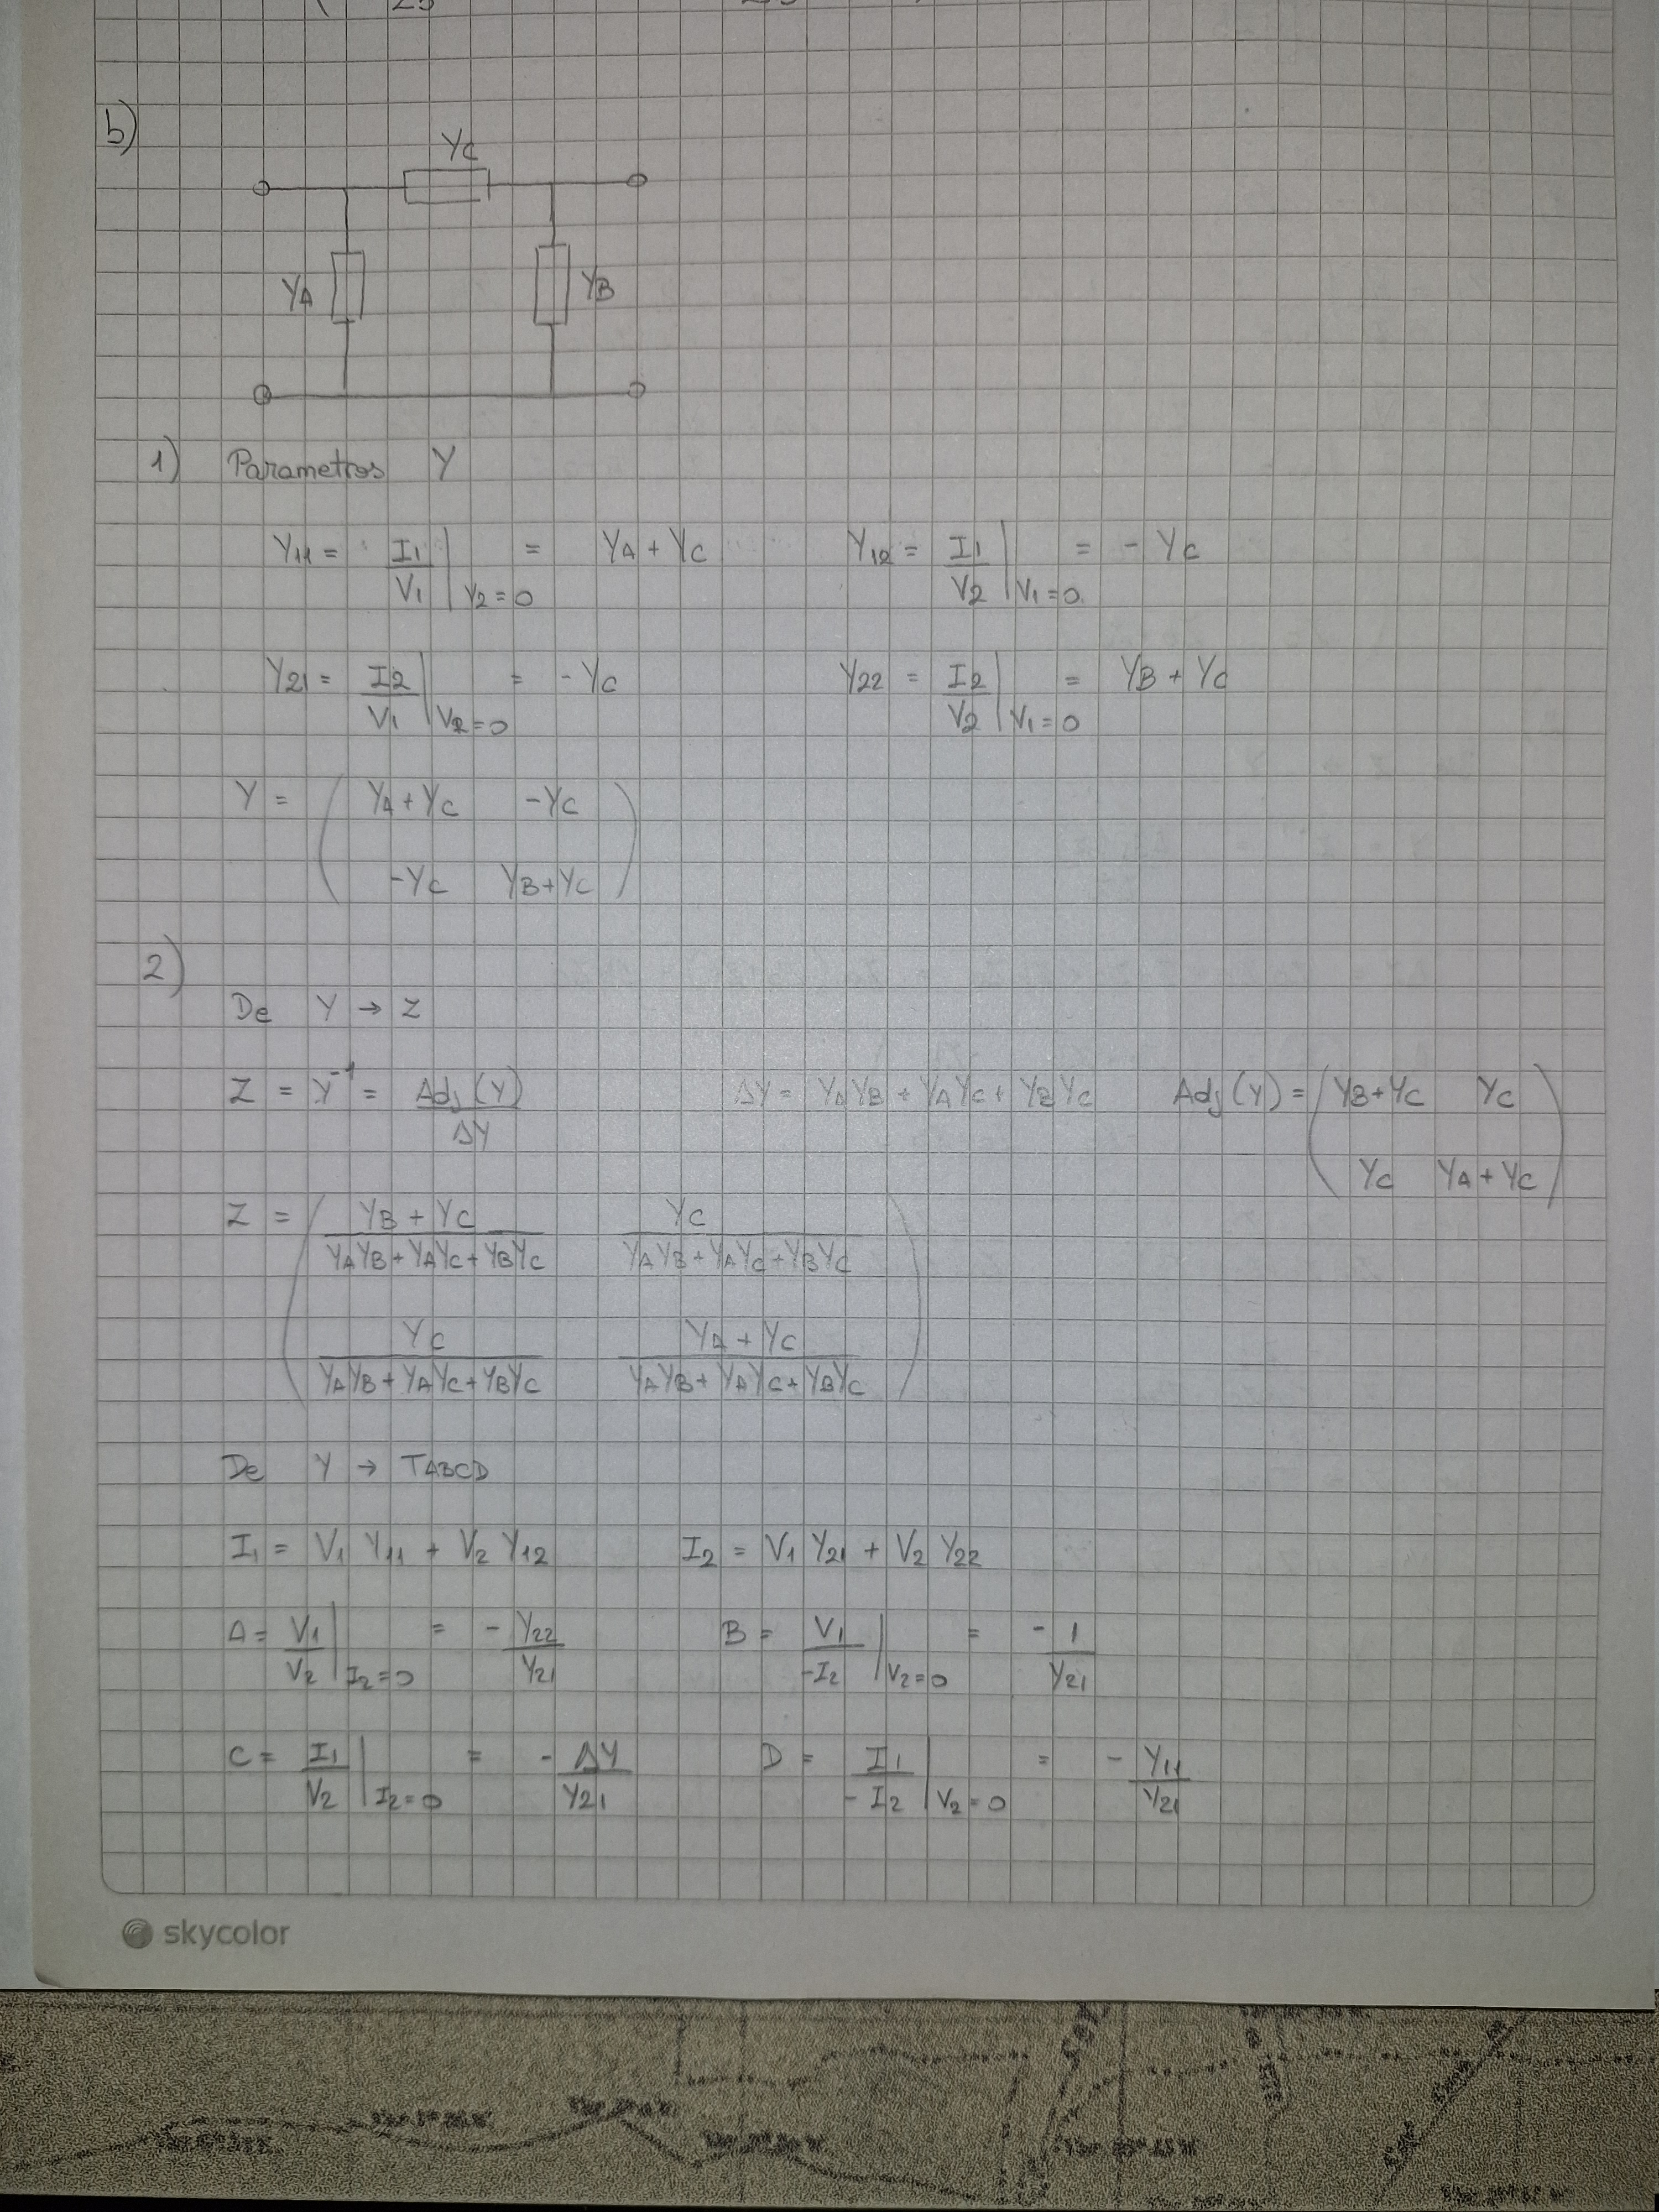 b)
YC
YA
YB
1) Parametros Y
Y11 = I1/V1 |V2=0 = YA + YC Y12 = I1/V2 |V1=0 = - YC
Y21 = I2/V1 |V2=0 = - YC Y22 = I2/V2 |V1=0 = YB + YC
Y = ( YA + YC -YC
-YC YB+YC )
2)
De Y → Z
Z = Y⁻¹ = Adj(Y)/ΔY ΔY = YAYB + YAYC + YBYC Adj(Y) = ( YB+YC YC
YC YA+YC )
Z = ( YB + YC / YAYB + YAYC + YBYC YC / YAYB + YAYC + YBYC
YC / YAYB + YAYC + YBYC YA + YC / YAYB + YAYC + YBYC )
De Y → TABCD
I1 = V1 Y11 + V2 Y12 I2 = V1 Y21 + V2 Y22
A = V1/V2 |I2=0 = - Y22/Y21 B = V1/-I2 |V2=0 = - 1/Y21
C = I1/V2 |I2=0 = - ΔY/Y21 D = I1/-I2 |V2=0 = - Y11/Y21
skycolor